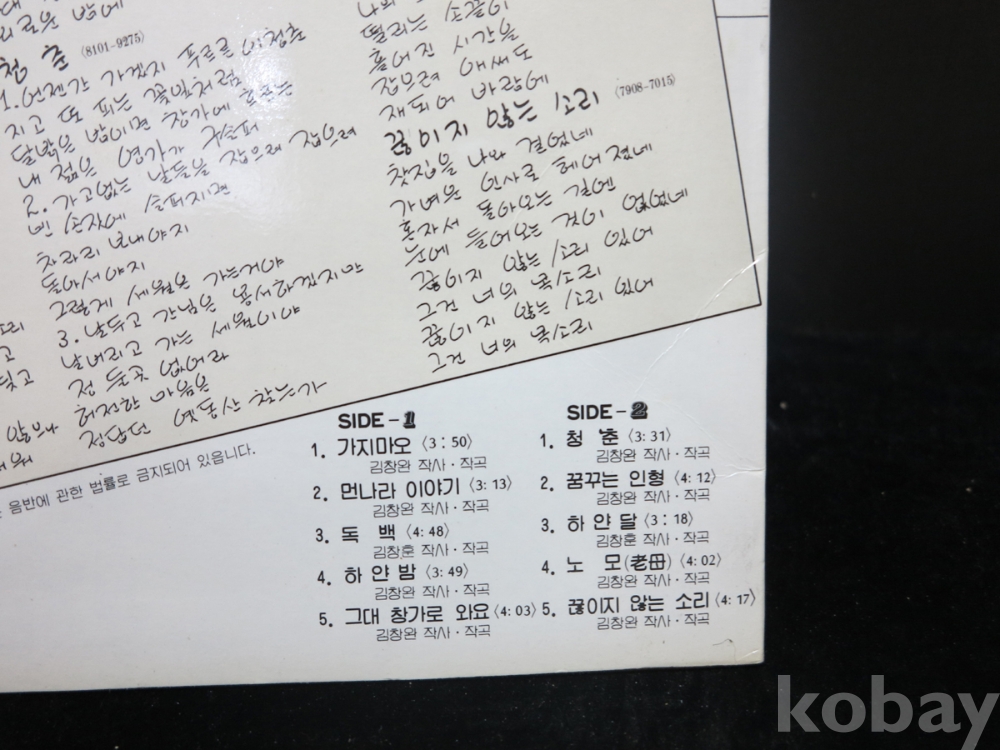 리로운 밤에
청춘 〈8101-9275〉
1. 언젠간 가겠지 푸르른 이 청춘
지고 또 피는 꽃잎처럼
달밝은 밤이면 창가에 흐르는
내 젊은 영가가 구슬퍼
2. 가고없는 날들을 잡으려 잡으려
빈 손짓에 슬퍼지면
차라리 보내야지
돌아서야지
그렇게 세월은 가는거야
3. 날두고 간님은 용서하겠지만
날버리고 가는 세월이야
정 둘곳 없어라
허전한 마음은
정답던 옛동산 찾는가
떨리는 손끝이
흩어진 시간을
잡으려 애써도
재되어 바람에
끊이지 않는 소리 〈7908-7015〉
찻집을 나와 걸었네
가벼운 인사로 헤어졌네
혼자서 돌아오는 길엔
눈에 들어오는 것이 없었네
끊이지 않는 소리 있어
그건 너의 목소리
끊이지 않는 소리 있어
그건 너의 목소리
음반에 관한 법률로 금지되어 있읍니다.
SIDE-1
1. 가지마오 〈3:50〉
김창완 작사·작곡
2. 먼나라 이야기 〈3:13〉
김창완 작사·작곡
3. 독 백 〈4:48〉
김창훈 작사·작곡
4. 하얀밤 〈3:49〉
김창완 작사·작곡
5. 그대 창가로 와요 〈4:03〉
김창완 작사·작곡
SIDE-2
1. 청 춘 〈3:31〉
김창완 작사·작곡
2. 꿈꾸는 인형 〈4:12〉
김창완 작사·작곡
3. 하얀달 〈3:18〉
김창훈 작사·작곡
4. 노 모(老母) 〈4:02〉
김창완 작사·작곡
5. 끊이지 않는 소리 〈4:17〉
김창완 작사·작곡
kobay